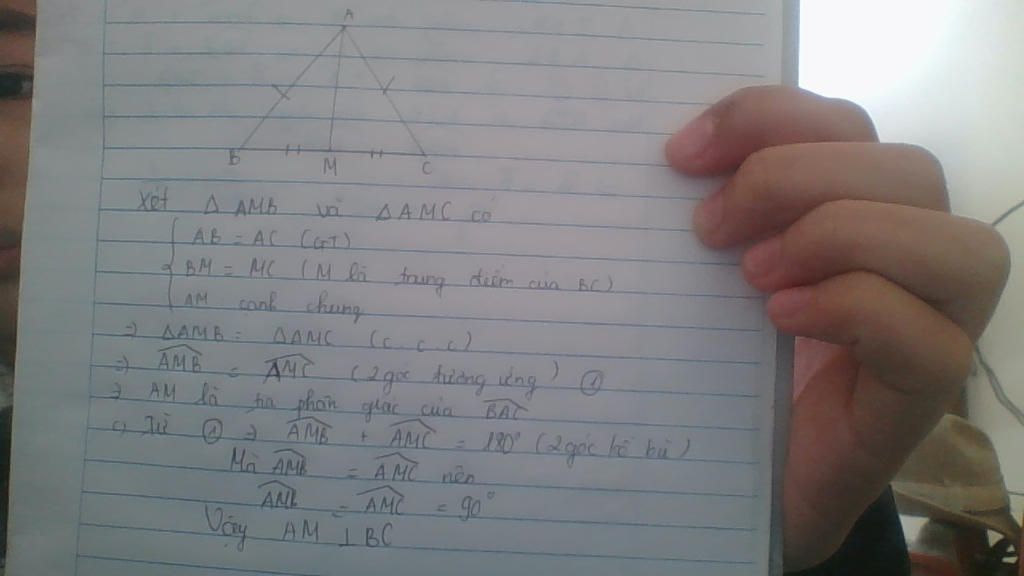 A
B
M
C
Xét Δ AMB và Δ AMC có
AB = AC (GT)
BM = MC (M là trung điểm của BC)
AM cạnh chung
=> ΔAMB = ΔAMC (c. c. c)
=> AMB = AMC (2 góc tương ứng) ①
=> AM là tia phân giác của BAC
c, Từ ① => AMB + AMC = 180° (2 góc kề bù)
Mà AMB = AMC nên
AMB = AMC = 90°
Vậy AM ⊥ BC